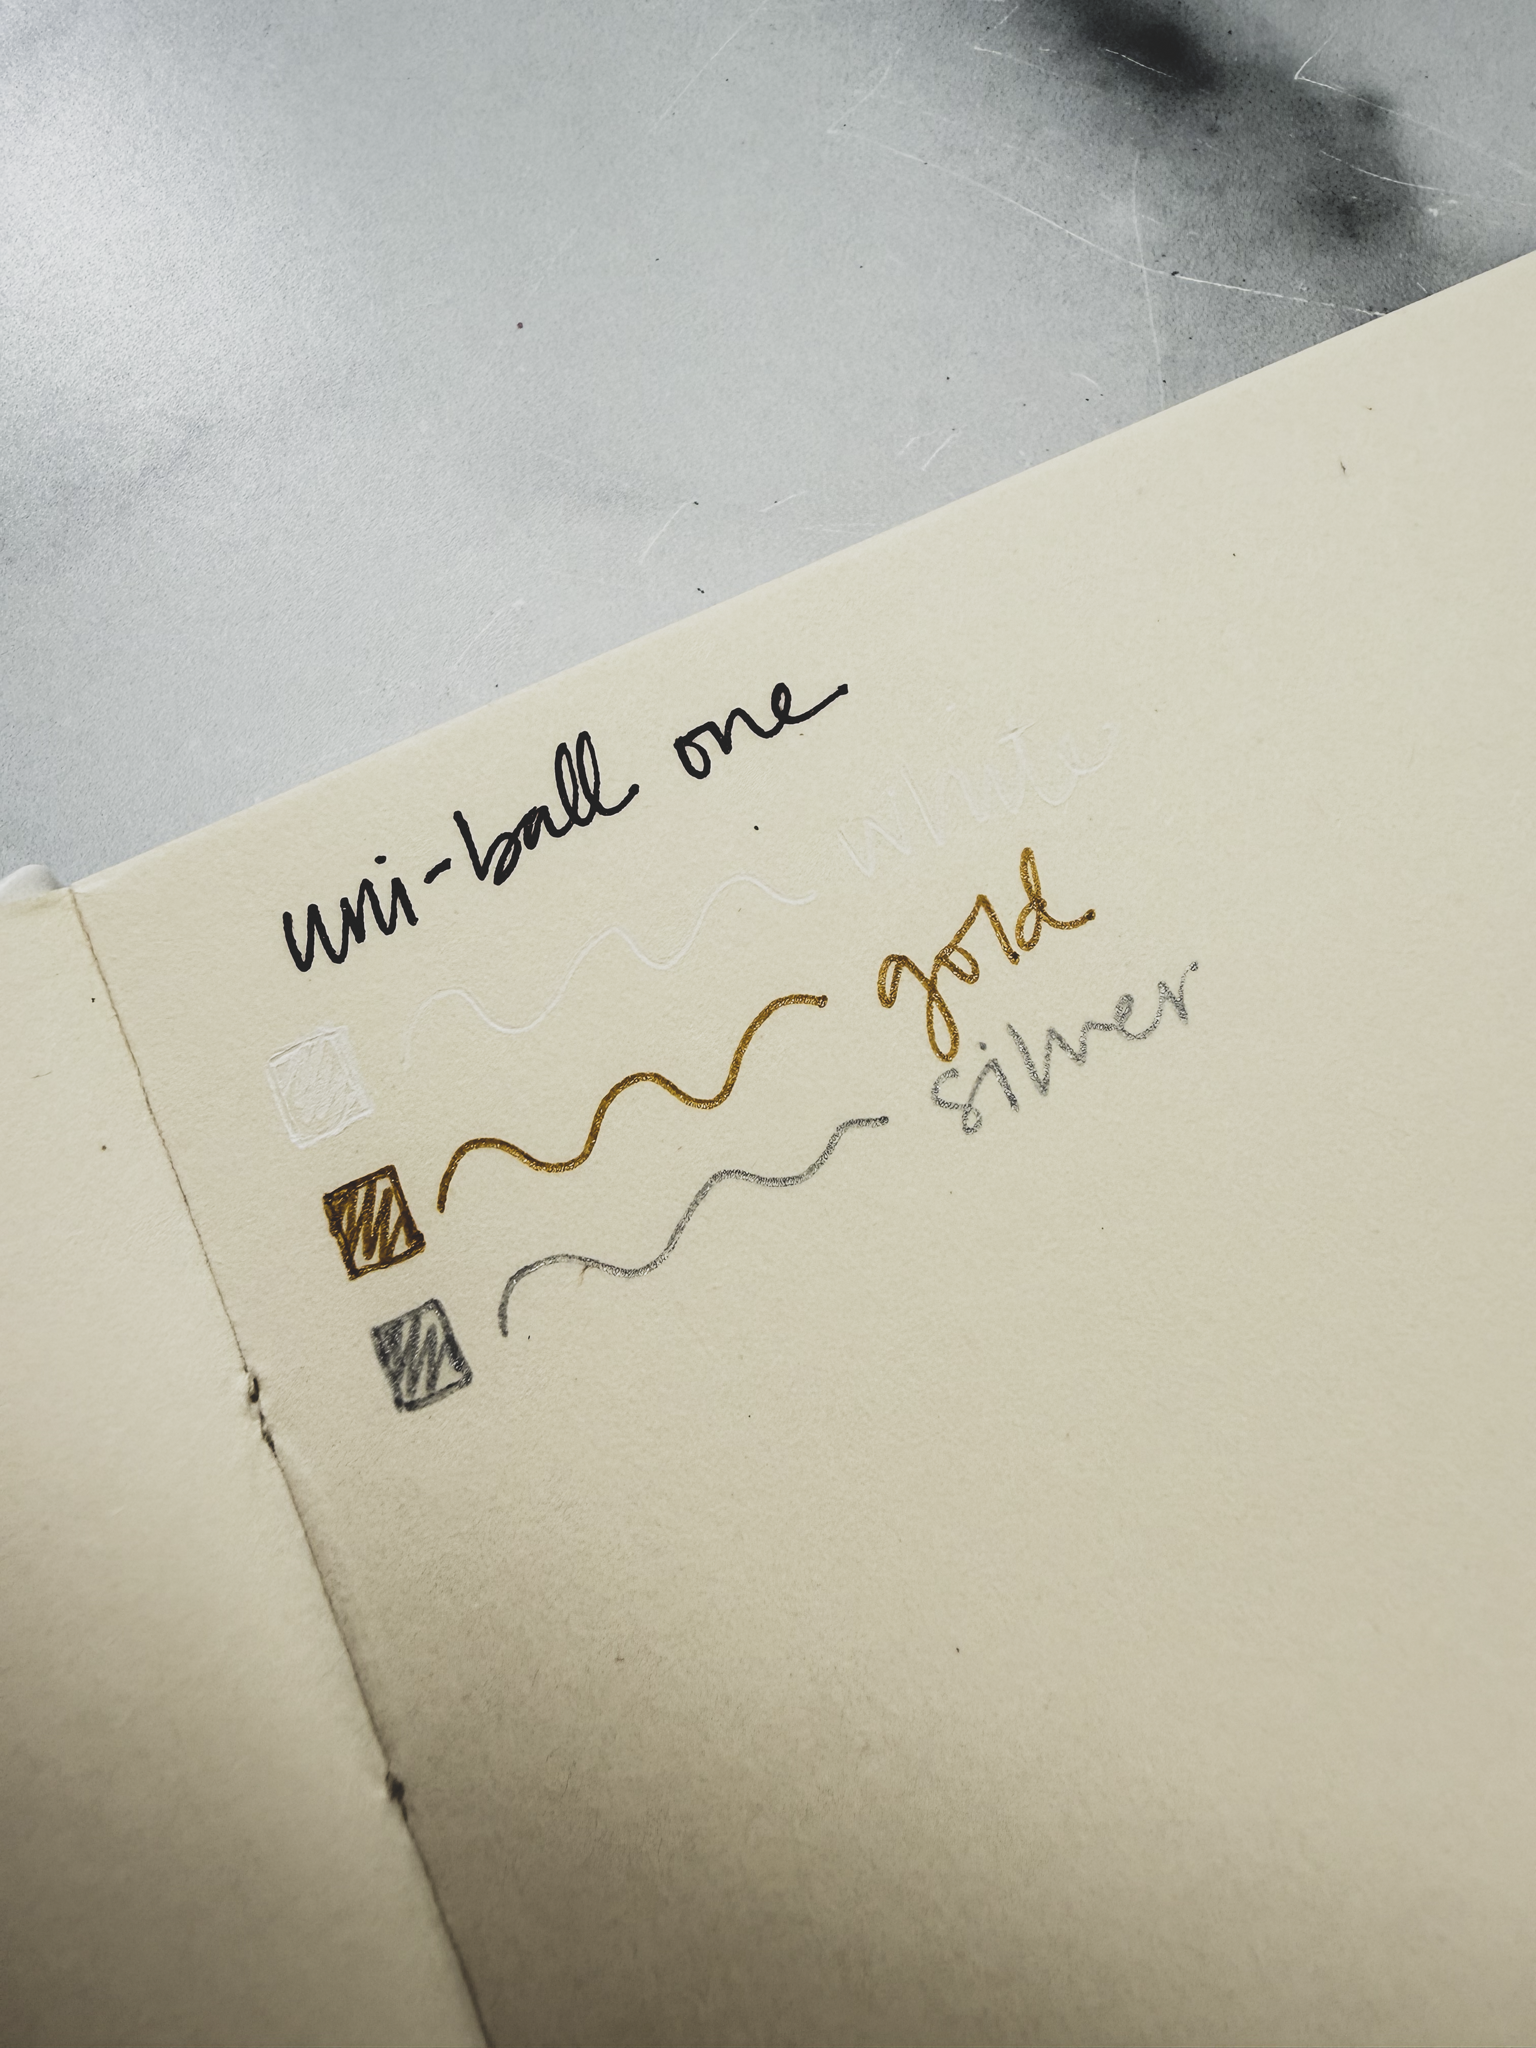 uni-ball one
white
gold
silver